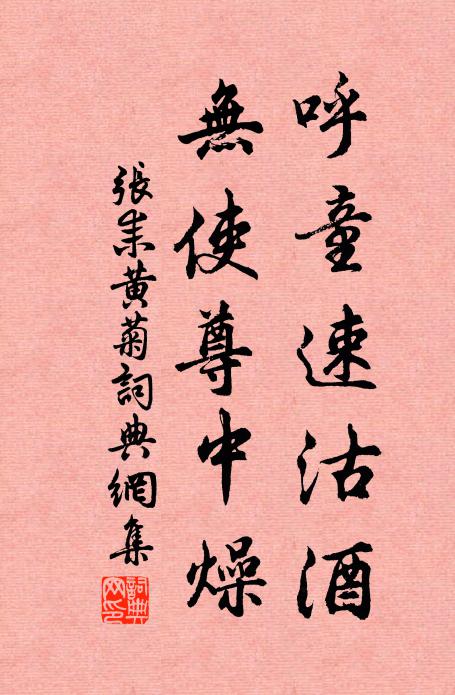 呼童速沽酒
無使尊中燥
張耒黃菊詞典網集
詞典網印